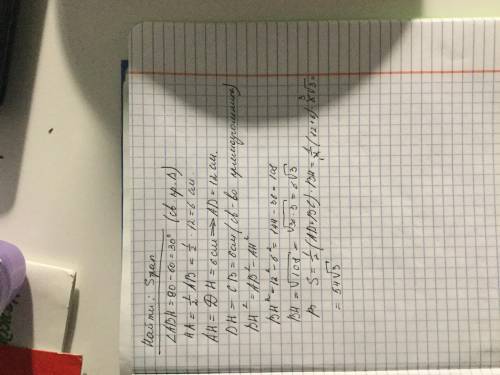 Найти: Sтрап.
∠ABH = 90 - 60 = 30° (св. пр. Δ)
HA = 1/2 AB = 1/2 · 12 = 6 см.
AH = DH = 6 см ⇒ AD = 12 см.
DH = CB = 6 см (св-во прямоугольника)
BH² = AB² - AH²
BH² = 12 - 6² = 144 - 36 = 108
BH = √108 = √36·3 = 6√3
S = 1/2 (AD + BC) · BH = 1/2 (12 + 6) · 6√3 =
= 54√3